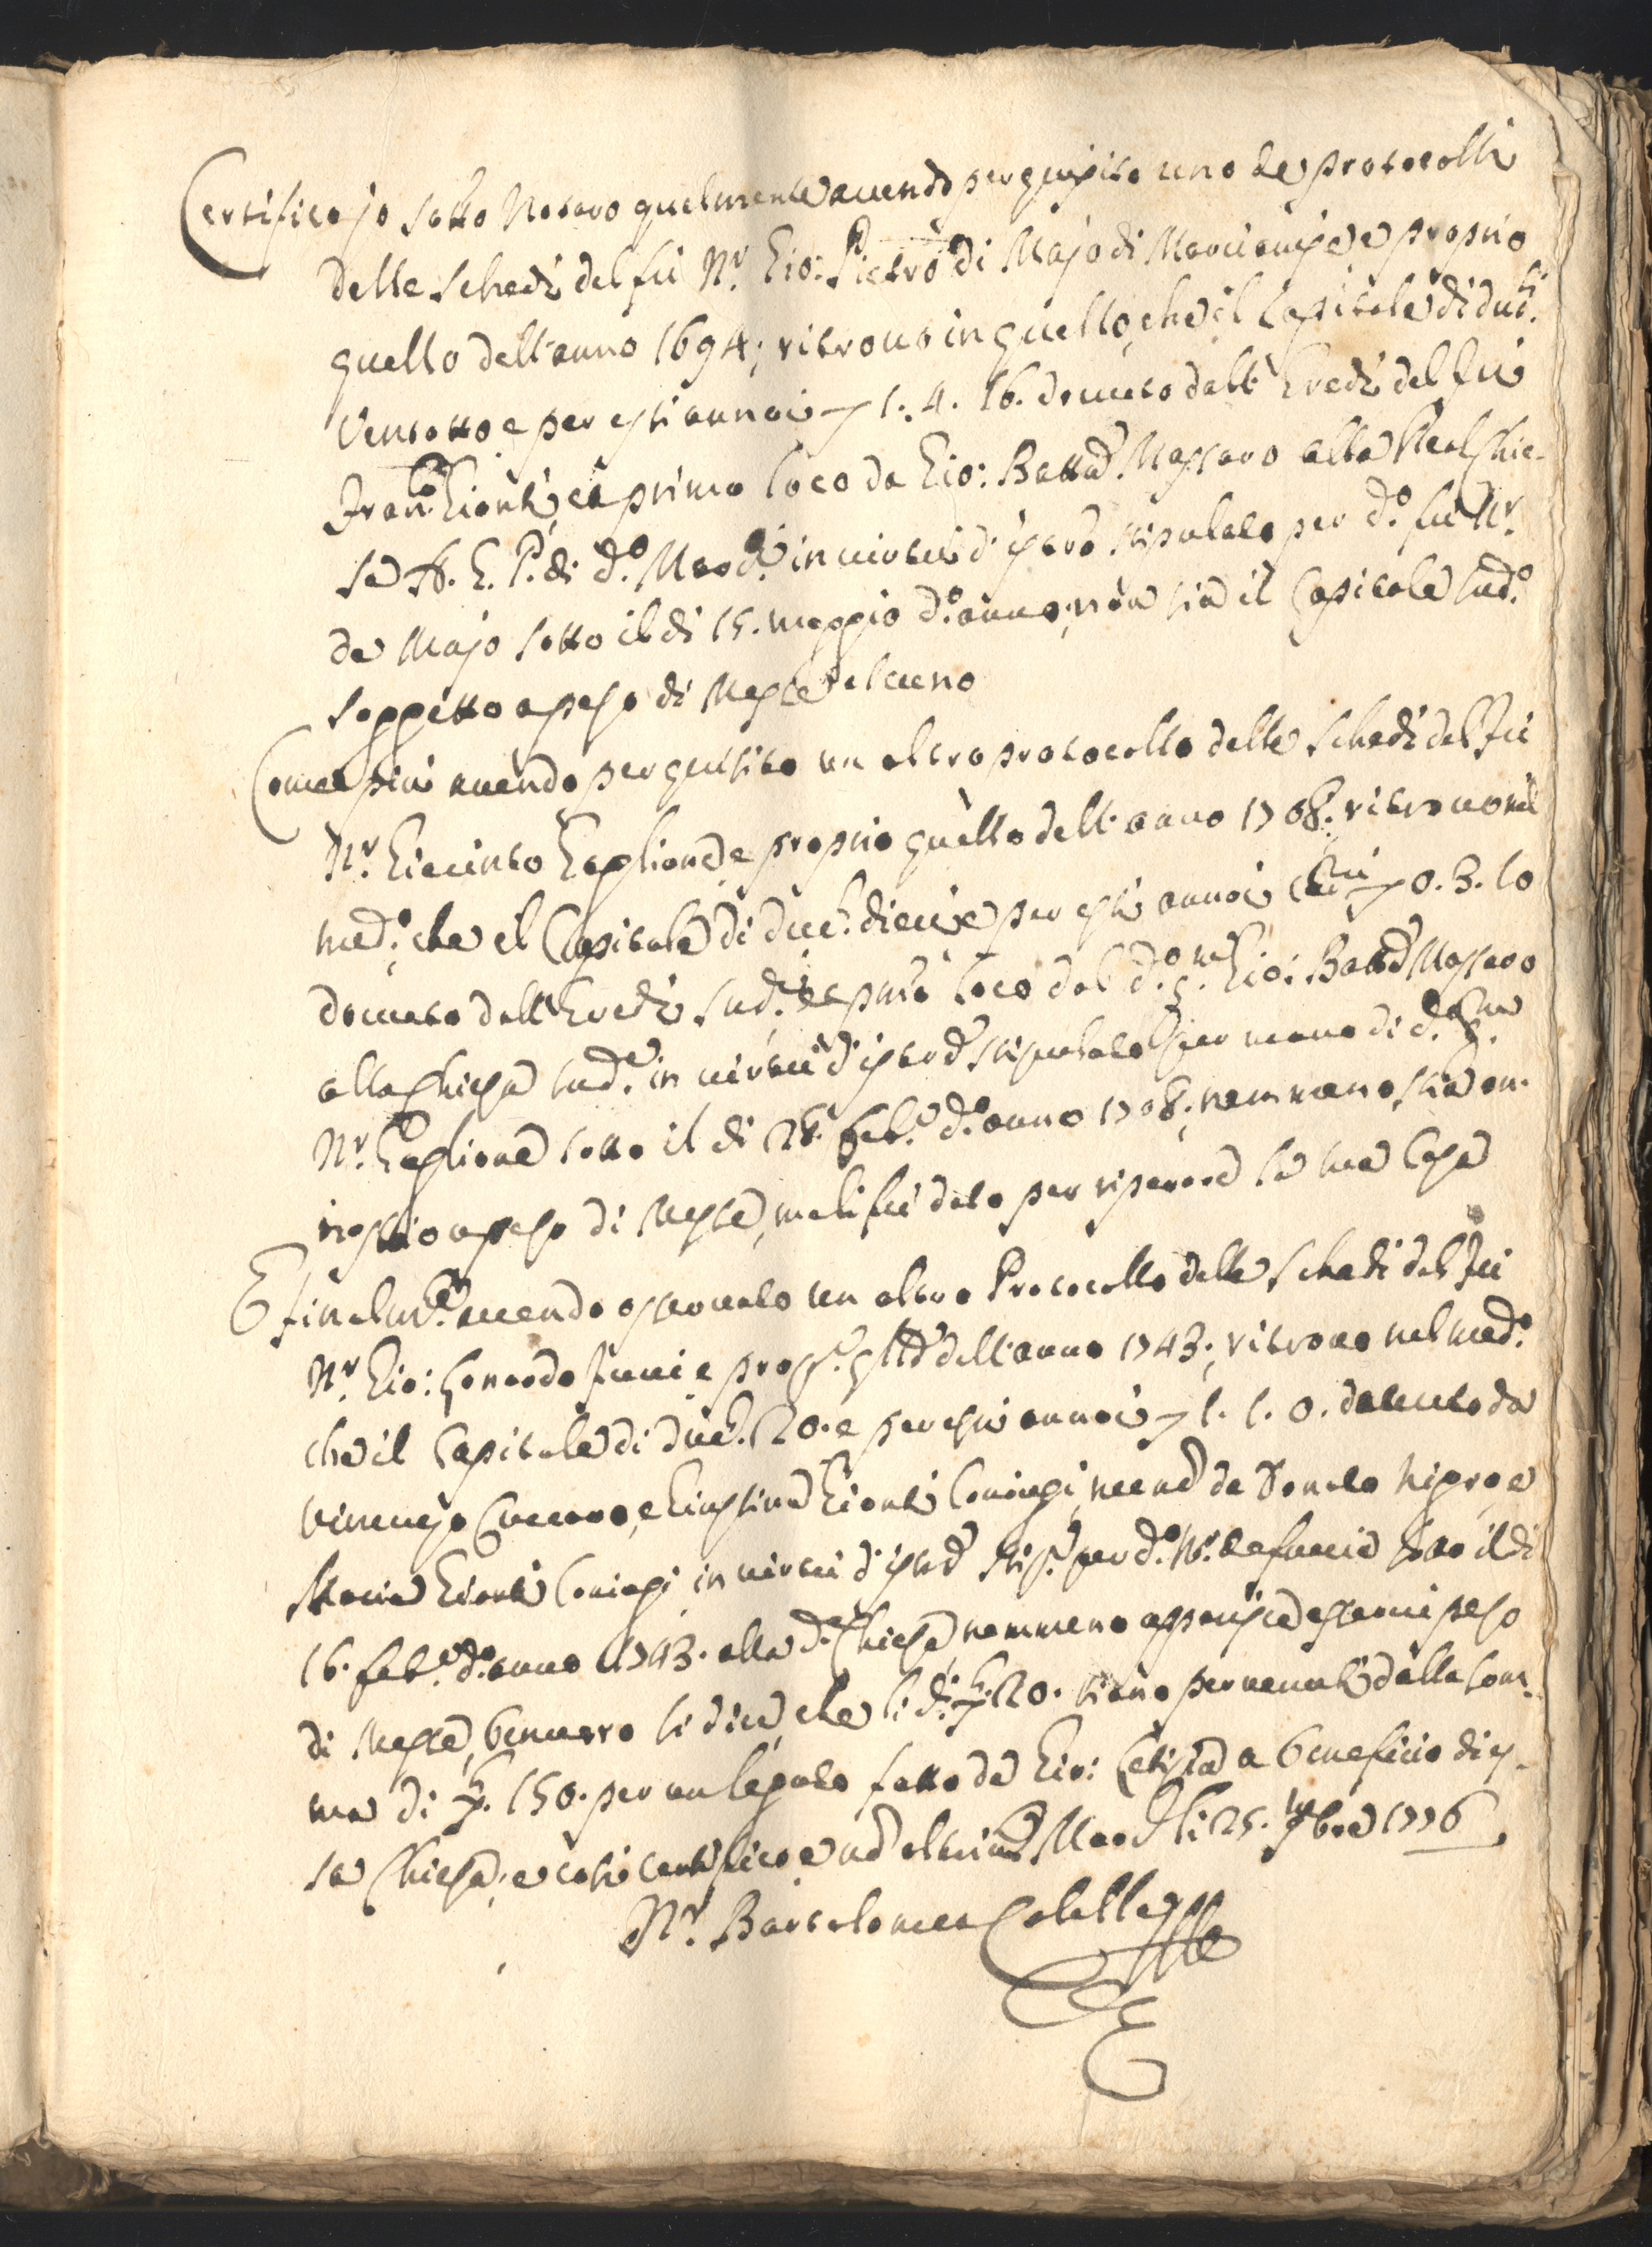 Certifico jo sotto Notaro qualmente avendo perquisito uno de protocolli
delle schedi del fù Nr. Gio: Pietro di Majo di Marcianise e proprio
quello dell'anno 1694; ritrovo in quello, che il Capitale di duc.ti
Ventotto, e per essi annoi 1. 4. 16. dovuto dall'Eredi del fù
Fran.co Gionti, ed a primo loco da Gio: Batta Massaro alla Real Chie-
sa A. G. P. di d.o Marc.e in virtù d'istro stipulato per d.o fù Nr.
de Majo sotto il di 15. maggio d.o anno, non sia il Capitale sud.o
soggetto a peso di Messe alcuno
Come più avendo perquisito un altro protocollo delle schedi del fù
Nr. Giacinto Taglione, e proprio quello dell'anno 1708. ritrovo nel
med.o, che il Capitale di duc.ti dieci, e per essi annoi 0. 3. 10
dovuto dall'Eredi sud.i, ed a primo loco dal d.o q.m Gio: Batta Massaro
alla Chiesa sud.a in virtù d'istro stipulato per mano di d.o q.m
Nr. Taglione sotto il di 28. feb.o d.o anno 1708, nemmeno stia an-
nossio a peso di Messe, mali fù dato per riparare la sua Casa
E finalm.te avendo osservato un altro Protocollo delle schedi del fù
Nr. Gio: Leonardo Fucci e prop.o dell'anno 1743; ritrovo nel med.o
che il Capitale di duc.ti 20. e per essi annoi 1. 1. 0. dovuto da
Vincenzo Cuccaro, e Giustina Gionti Coniugi, necno da Donato Nigro, e
Maria Gionti Coniugi in virtù d'istro stip.o per d.o Nr. de Fuccia sotto il di
16. feb.o d.o anno 1743. alla d.a Chiesa, nemmeno apparisce esservi peso
di Messe, benvero si dice, che li d.i 20. siano pervenuti dalla som-
ma di 150. per un legato fatto da Gio: Letizia a beneficio di es-
sa Chiesa; e così certifico, e Marc.e li 25. 9bre 1776
Nr. Bartolomeo Calella